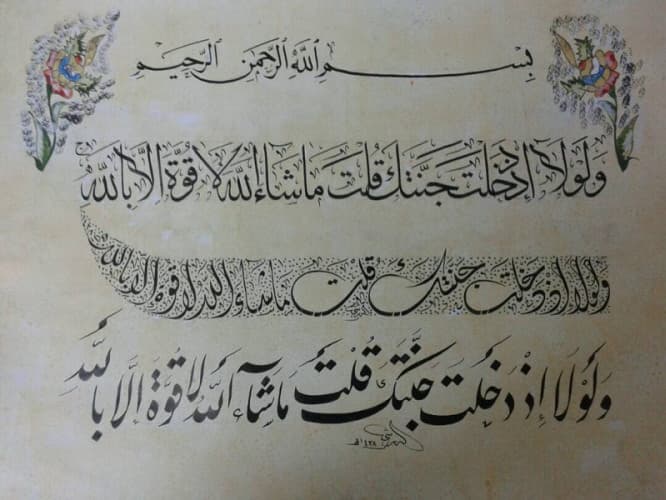 بِسْمِ اللَّهِ الرَّحْمَنِ الرَّحِيمِ
وَلَوْلَا إِذْ دَخَلْتَ جَنَّتَكَ قُلْتَ مَا شَاءَ اللَّهُ لَا قُوَّةَ إِلَّا بِاللَّهِ
ولولا إذ دخلت جنتك قلت ما شاء الله لا قوة إلا بالله
وَلَوْلَا إِذْ دَخَلْتَ جَنَّتَكَ قُلْتَ مَا شَآءَ اللَّهُ لَا قُوَّةَ إِلَّا بِاللَّهِ